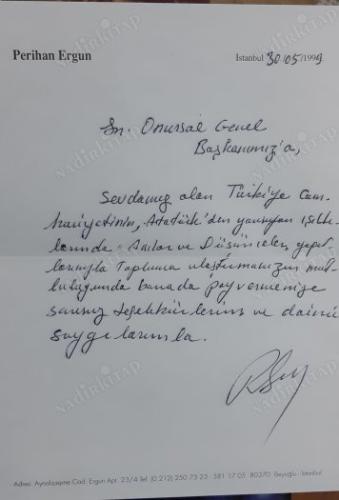 Perihan Ergun
İstanbul 30/05/1999
Sn. Onursal Genel
Başkanımız'a,
Sevdamız olan Türkiye Cum-
huriyetinin, Atatürk'den yansıyan ışık-
larında "Anılar ve Düşünceler" yapıt-
larınızla Topluma ulaştırmanızın mut-
luluğunda banada pay vermenize
sonsuz teşekkürlerim ve daimi
saygılarımla.
Adres: Aynalıçeşme Cad. Ergun Apt. 23/4 Tel: (0.212) 250 73 23 - 581 17 05 80370 Beyoğlu - İstanbul
NADİRKİTAP